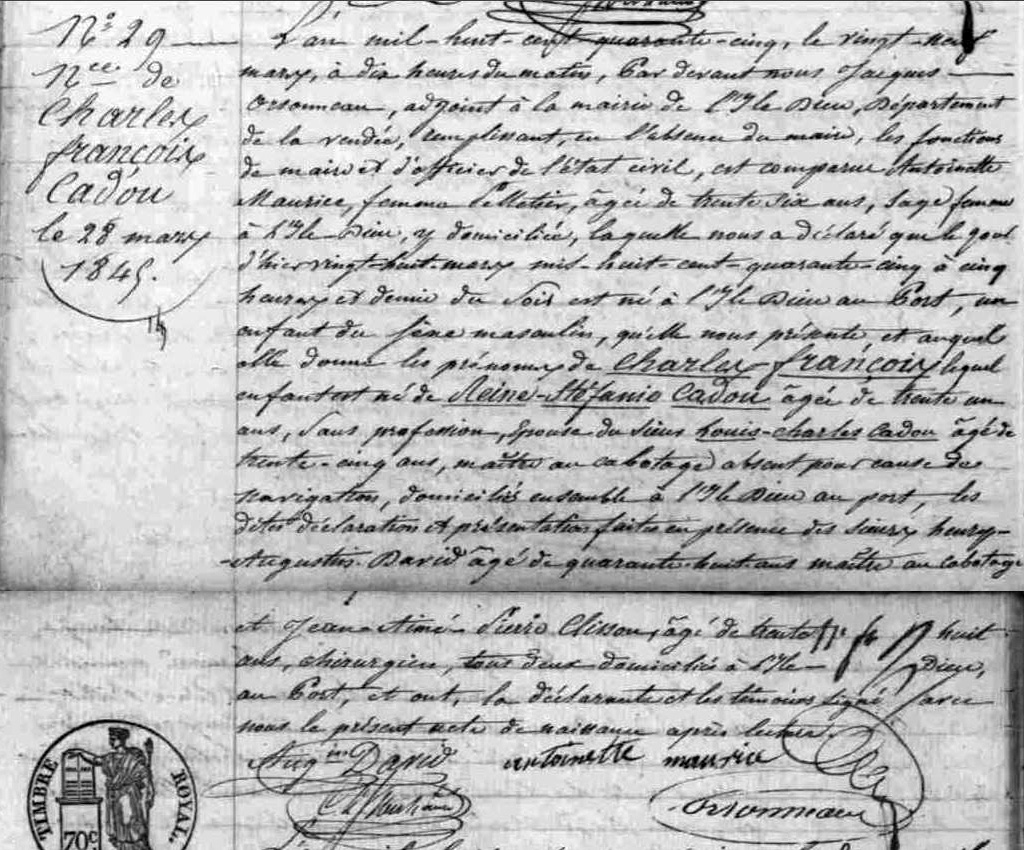 N° 29
Nce de
Charles
françois
Cadou
le 28 mars
1845.
L'an mil-huit-cent-quarante-cinq, le vingt-neuf
mars, à dix heures du matin, Par devant nous Jacques
Orsonneau, adjoint à la mairie de l'Ile Dieu, Département
de la vendée, remplissant, en l'absence du maire, les fonctions
de maire et d'officier de l'état civil, est comparue Antoinette
Maurice, femme Pelletier, âgée de trente six ans, sage femme
à l'Ile Dieu, y domiciliée, laquelle nous a déclaré que le jour
d'hier vingt-huit-mars mil-huit-cent-quarante-cinq à cinq
heures et demie du soir est né à l'Ile Dieu au Port, un
enfant du sexe masculin, qu'elle nous présente, et auquel
elle donne les prénoms de Charles-françois lequel
enfant est né de Reine-Stéfanie Cadou âgée de trente un
ans, sans profession, Epouse du sieur Louis-Charles Cadou âgé de
trente-cinq ans, maître au cabotage absent pour cause de
navigation, domiciliés ensemble à l'Ile Dieu au port, les
dites déclaration et présentation faites en présence des sieurs henry-
Augustin David âgé de quarante-huit ans maître au cabotage
et Jean-Aimé-Pierre Clisson, âgé de trente huit
ans, chirurgien, tous deux domiciliés à l'Ile-Dieu,
au Port, et ont, la déclarante et les témoins signé avec
nous le présent acte de naissance après lecture.
Augin David antoinette maurice
Orsonneau
TIMBRE ROYAL.
70c